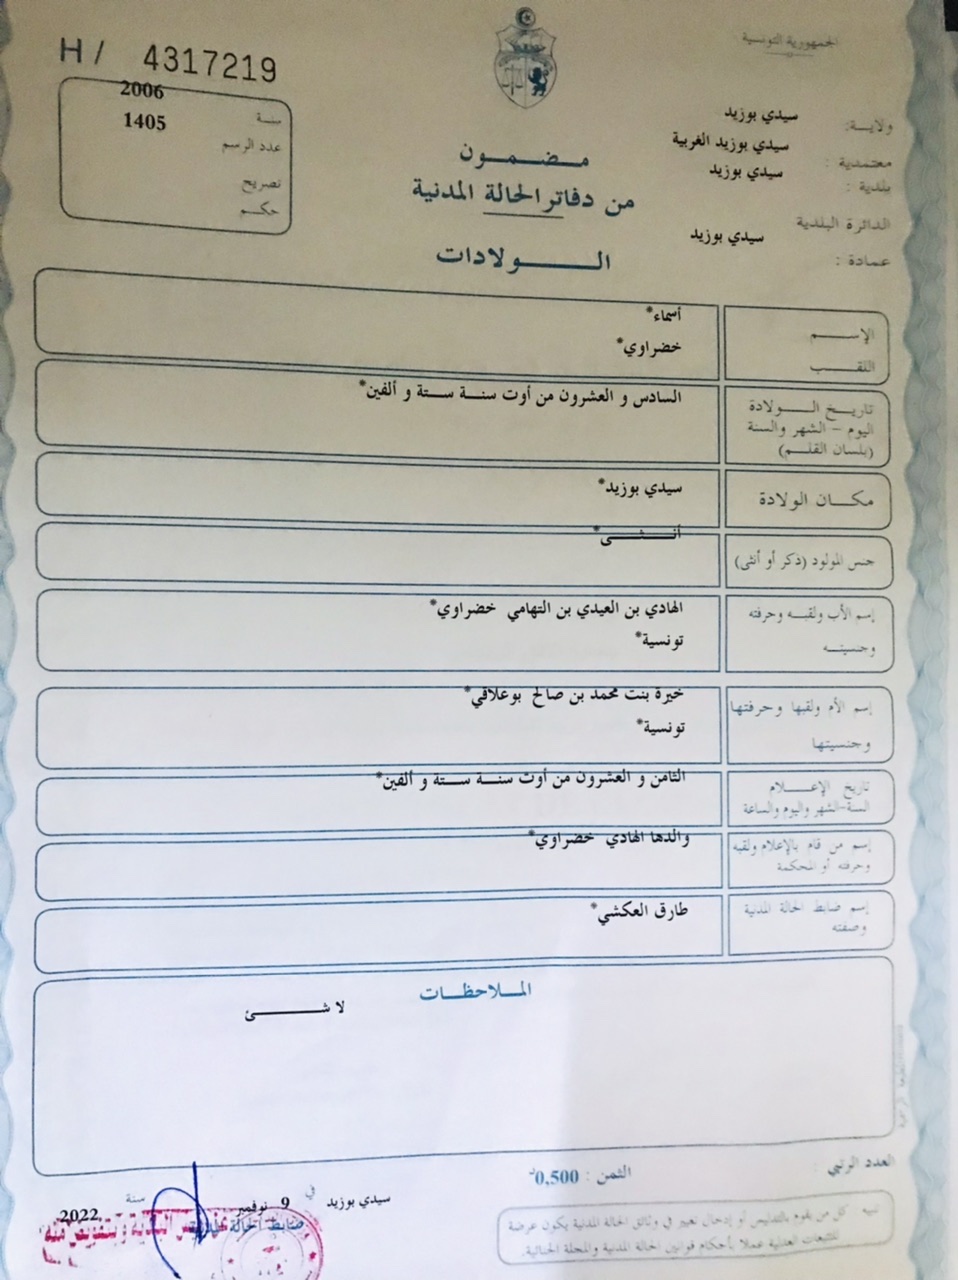 الجمهورية التونسية
H / 4317219
سنة 2006
عدد الرسم 1405
تصريح
حكم
ولاية: سيدي بوزيد
معتمدية: سيدي بوزيد الغربية
بلدية: سيدي بوزيد
الدائرة البلدية
عمادة: سيدي بوزيد
مضمون
من دفاتر الحالة المدنية
الولادات
الإسم أسماء*
اللقب خضراوي*
تاريخ الولادة
اليوم - الشهر والسنة
(بلسان القلم)
السادس و العشرون من أوت سنة ستة و ألفين*
مكان الولادة سيدي بوزيد*
جنس المولود (ذكر أو أنثى) أنثى*
إسم الأب ولقبه وحرفته الهادي بن العيدي بن التهامي خضراوي*
وجنسيته تونسية*
إسم الأم ولقبها وحرفتها خيرة بنت محمد بن صالح بوعلاقي*
وجنسيتها تونسية*
تاريخ الإعلام
السنة-الشهر واليوم والساعة
الثامن و العشرون من أوت سنة ستة و ألفين*
إسم من قام بالإعلام ولقبه
وحرفته أو المحكمة
والدها الهادي خضراوي*
إسم ضابط الحالة المدنية
وصفته
طارق العكشي*
الملاحظات
لا شئ
العدد الرتبي :
الثمن : 0,500د
سيدي بوزيد في 9 نوفمبر سنة 2022
ضابط الحالة المدنية
تنبيه : كل من يقوم بالتدليس أو إدخال تغيير في وثائق الحالة المدنية يكون عرضة
للتتبعات العدلية عملا بأحكام قوانين الحالة المدنية والمجلة الجنائية.